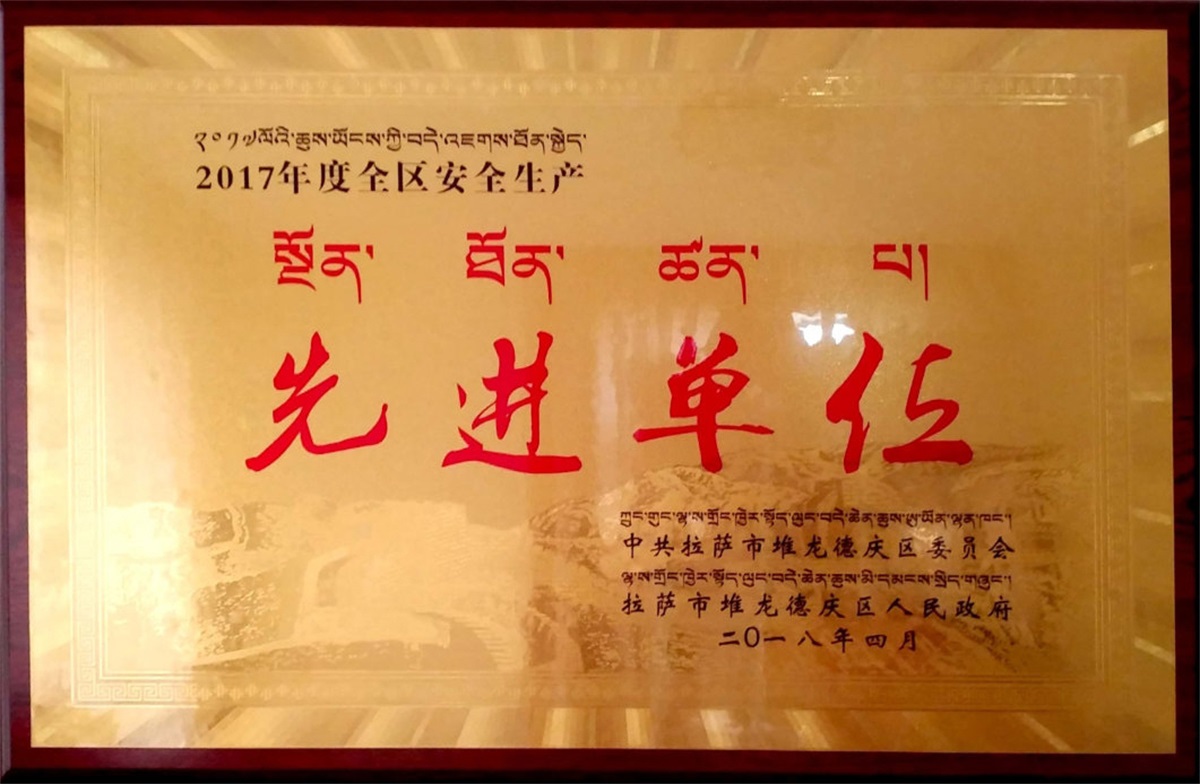 ༢༠༡༧ལོའི་ཆུས་ཡོངས་ཀྱི་བདེ་འཇགས་ཐོན་སྐྱེད་
2017年度全区安全生产
སྔོན་ ཐོན་ ཚན་ པ།
先进单位
ཀྲུང་གུང་ལྷ་ས་གྲོང་ཁྱེར་སྟོད་ལུང་བདེ་ཆེན་ཆུས་ཨུ་ཡོན་ལྷན་ཁང་།
中共拉萨市堆龙德庆区委员会
ལྷ་ས་གྲོང་ཁྱེར་སྟོད་ལུང་བདེ་ཆེན་ཆུས་མི་དམངས་སྲིད་གཞུང་།
拉萨市堆龙德庆区人民政府
二〇一八年四月